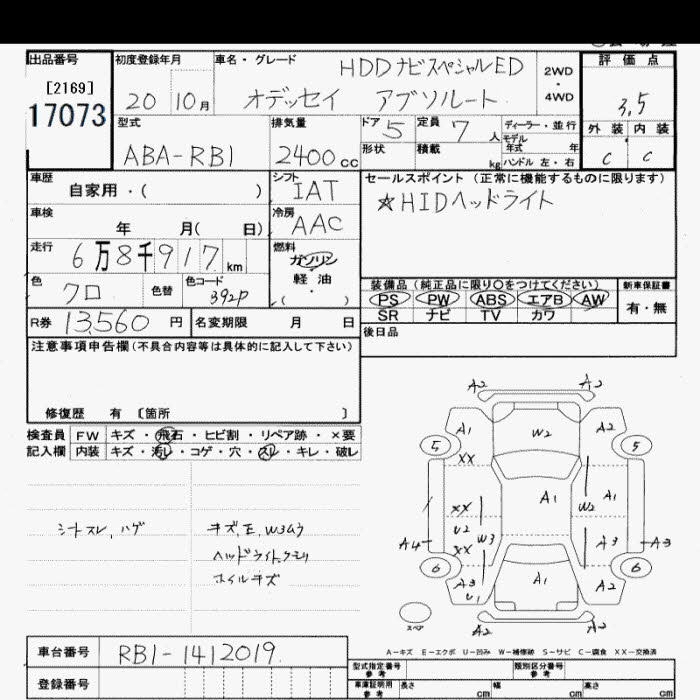 出品番号 初度登録年月 車名・グレード HDDナビスペシャルED 2WD・4WD 評価点
[2169]
17073 20 10月 オデッセイ アブソルート 3.5
型式 排気量 ドア 5 定員 7人 ディーラー・並行 外装 内装
ABA-RB1 2400cc 形状 積載 kg モデル年式 年 ハンドル 左・右 C C
車歴 シフト セールスポイント (正常に機能するものに限ります)
自家用・( ) IAT ☆HIDヘッドライト
車検 冷房
年 月( 日) AAC
走行 燃料
6万8千917km ガソリン
色 色替 色コード 軽油
クロ 392P ・( )
装備品(純正品に限り○をつけてください) 新車保証書
PS PW ABS エアB AW 有・無
SR ナビ TV カワ
R券 13,560円 名変期限 月 日 後日品
注意事項申告欄(不具合内容等は具体的に記入して下さい)
修復歴 有 〔箇所 〕
検査員 FW キズ・飛石・ヒビ割・リペア跡・×要
記入欄 内装 キズ・汚レ・コゲ・穴・スレ・キレ・破レ
シートスレ、ハゲ キズ,E,W3ムラ
ヘッドライトクモリ
ホイルキズ
A2 A2
A1 W2 A2
5 5
XX
XX A1 W2 A1
U2 W3
A4 XX A3 A3
6 6
A3 A1 A2
U1
スペア A2 A2
A-キズ E-エクボ U-凹み W-補修跡 S-サビ C-腐食 XX-交換済
車台番号 RB1-1412019
登録番号
型式指定番号 参考 類別区分番号 参考
車庫証明用 参考 長さ cm 幅 cm 高さ cm